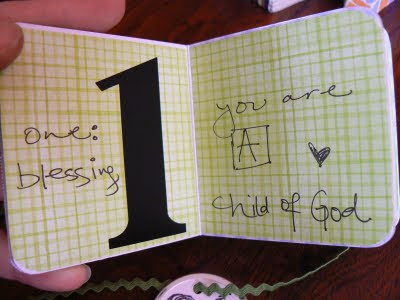 one:
blessing
1
you are
A
child of God